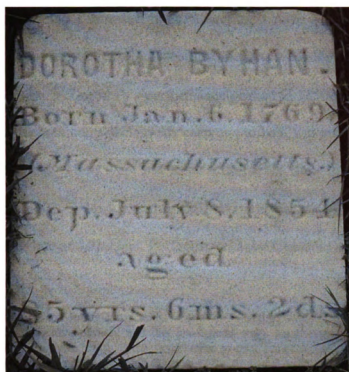 DOROTHA BYHAN.
Born Jan. 6. 1769.
(Massachusetts.)
Dep. July 8. 1854
aged
85 yrs. 6 ms. 2 ds.